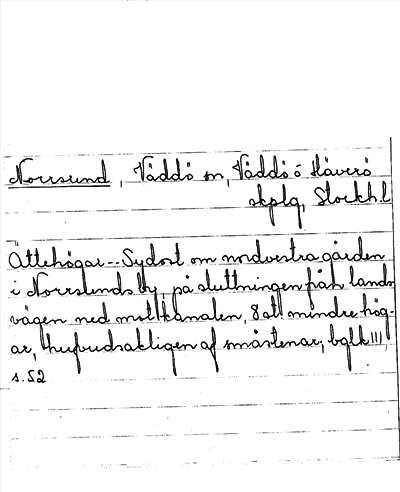 Norrsund, Väddö sn, Väddö o Häverö
skplg, Stockh.l
Ättehögar -- Sydost om nordvestra gården
i Norrsunds by, på sluttningen från lands-
vägen ned mot kanalen, 8 st. mindre hög-
ar, hufvudsakligen af småstenar;
s. 52